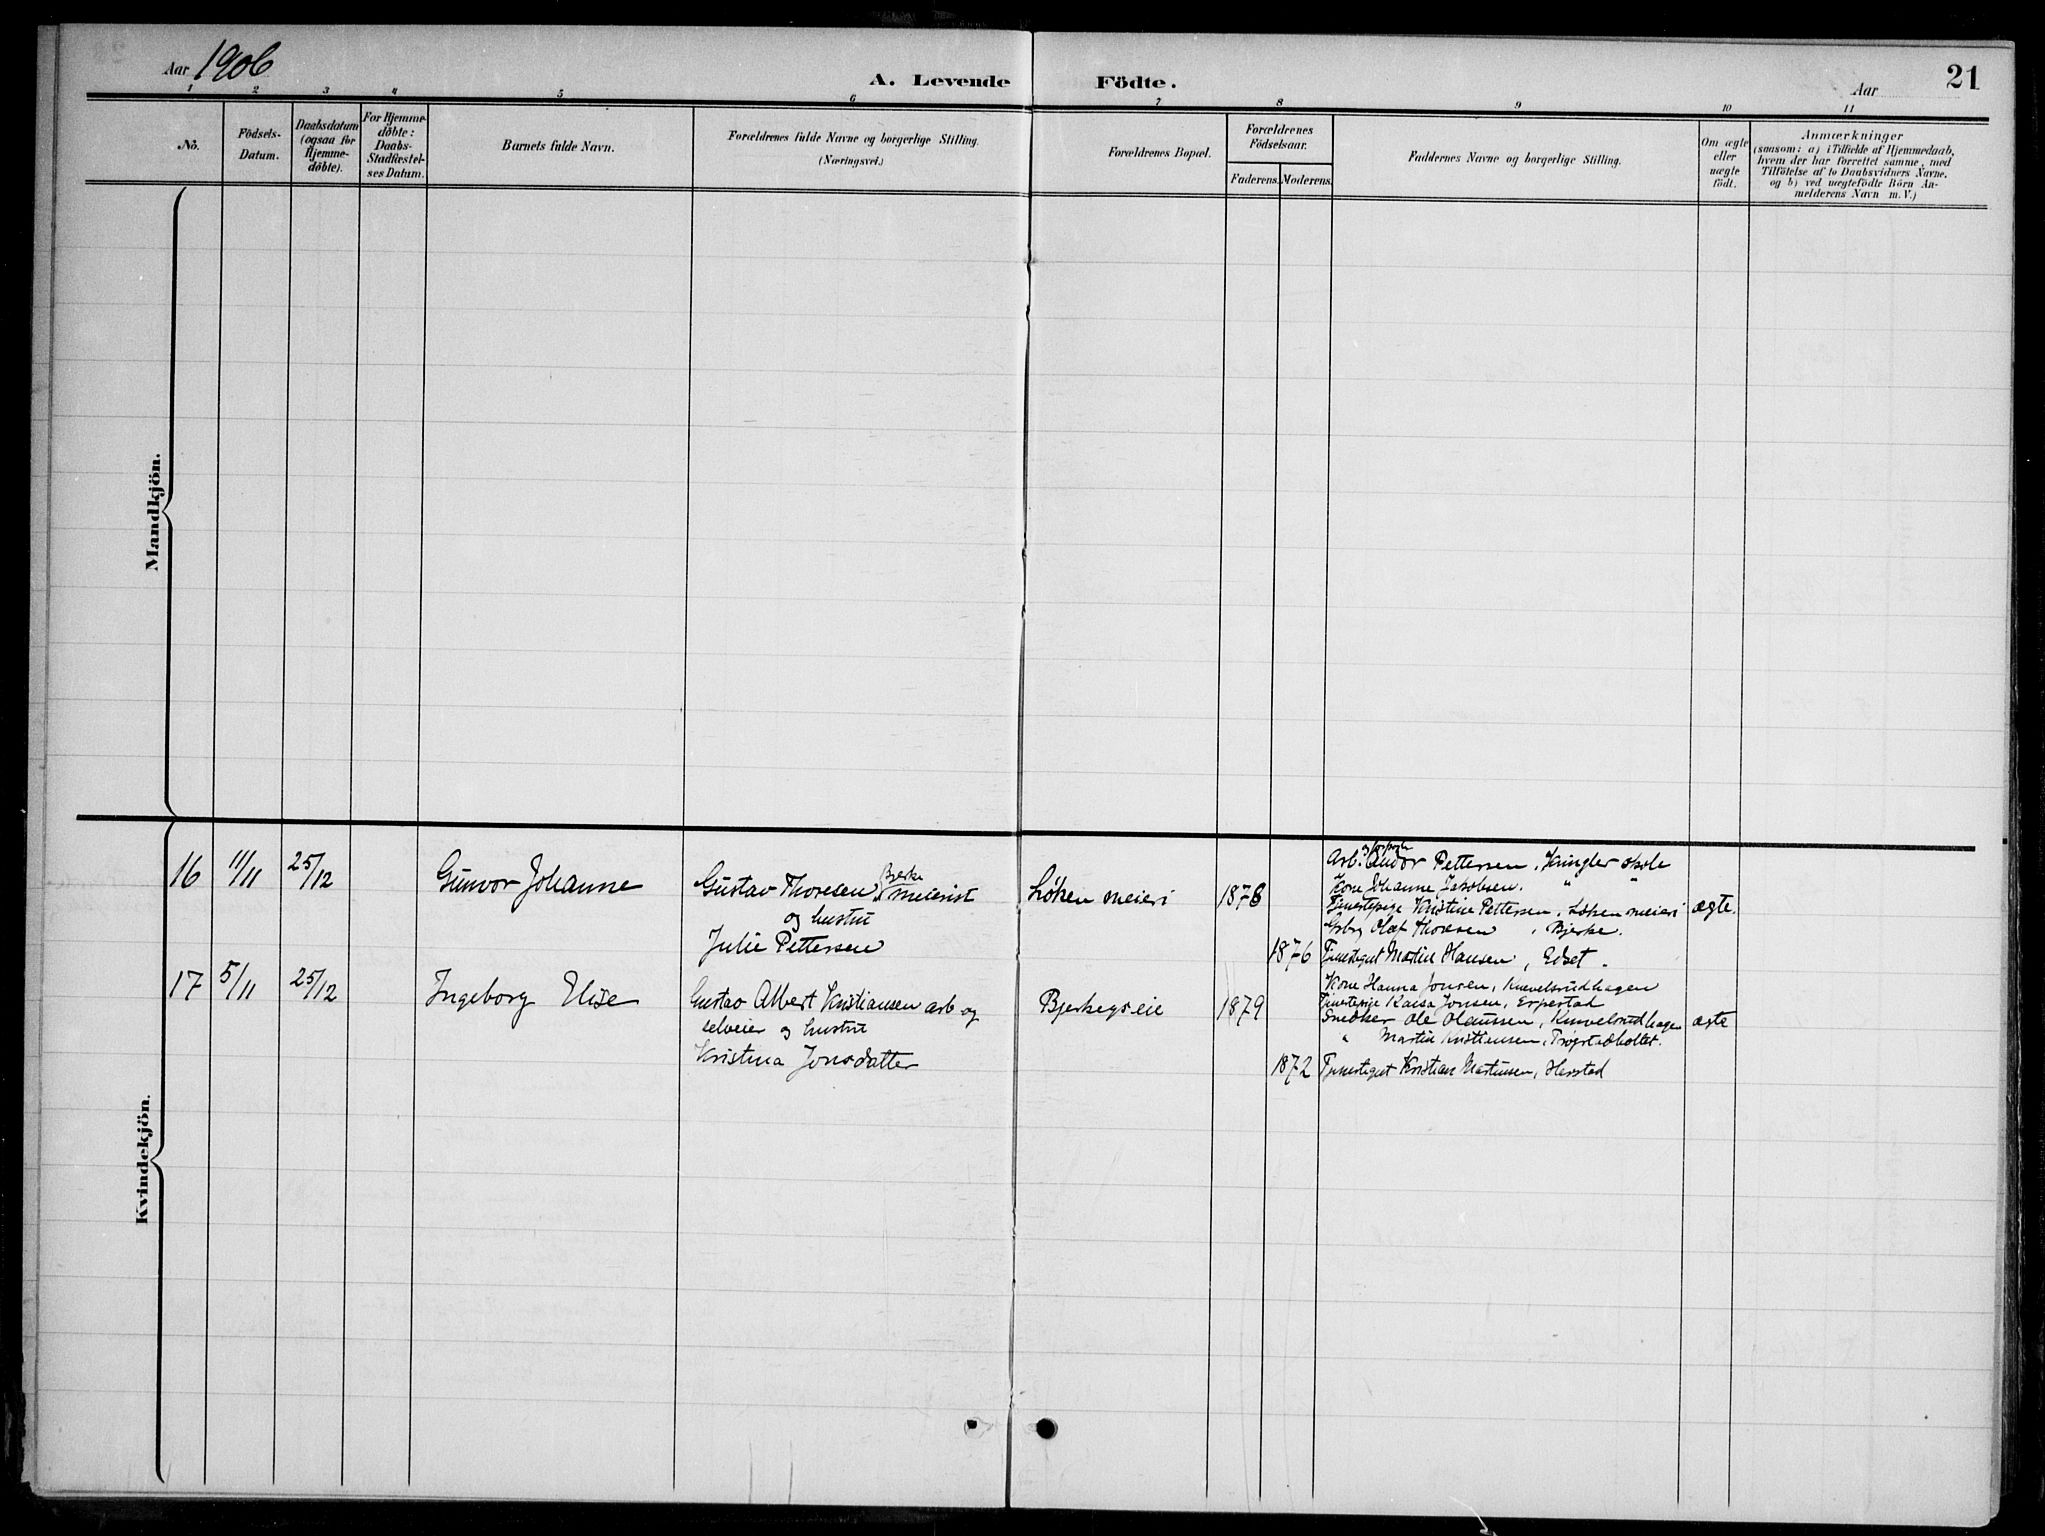 Aar 1906
A. Levende Födte.
Aar
21
1 2 3 4 5 6 7 8 9 10 11
No.
Födsels-
Datum.
Daabsdatum
(ogsaa for
Hjemme-
døbte).
For Hjemme-
døbte:
Daabs-
Stadfæstel-
ses Datum.
Barnets fulde Navn.
Forældrenes fulde Navne og borgerlige Stilling.
(Næringsvei.)
Forældrenes Bopæl.
Forældrenes
Födselsaar.
Faderens. Moderens.
Faddernes Navne og borgerlige Stilling.
Om ægte
eller
uægte
födt.
Anmærkninger
(saasom: a) i Tilfælde af Hjemmedaab,
hvem der har forrettet samme, med
Tilföielse af to Daabsvidners Navne.
og b) ved uægtefödte Börn An-
melderens Navn m.V.)
Mandkjön.
Kvindekjön.
16 11/11 25/12 Gunvor Johanne
Gustav Thoresen Bjerke meierist
og hustru
Julie Pettersen
Löken meieri
1878
1876
Arb. Andor Pettersen, Kringler skole
Kone Johanne Jakobsen. " "
Tjenestepige Kristine Pettersen, Löken meieri
Olaf Thoresen, Bjerke.
Tjenestegut Martin Hansen, Edset.
ægte.
17 5/11 25/12 Ingeborg Elise
Gustav Albert Kristiansen arb og
selveier og hustru
Kristina Jonsdatter
Bjerkegseie
1879
1872
Kone Hanna Jonsen, Knevelsrudhagen
Tjenestepige Kaisa Jonsen, Erpestad
Snedker Ole Olaussen, Knevelsrudhagen
" Martin Kristiansen, Trogstadholtet.
Tjenestegut Kristian Martinsen, Herstad
ægte